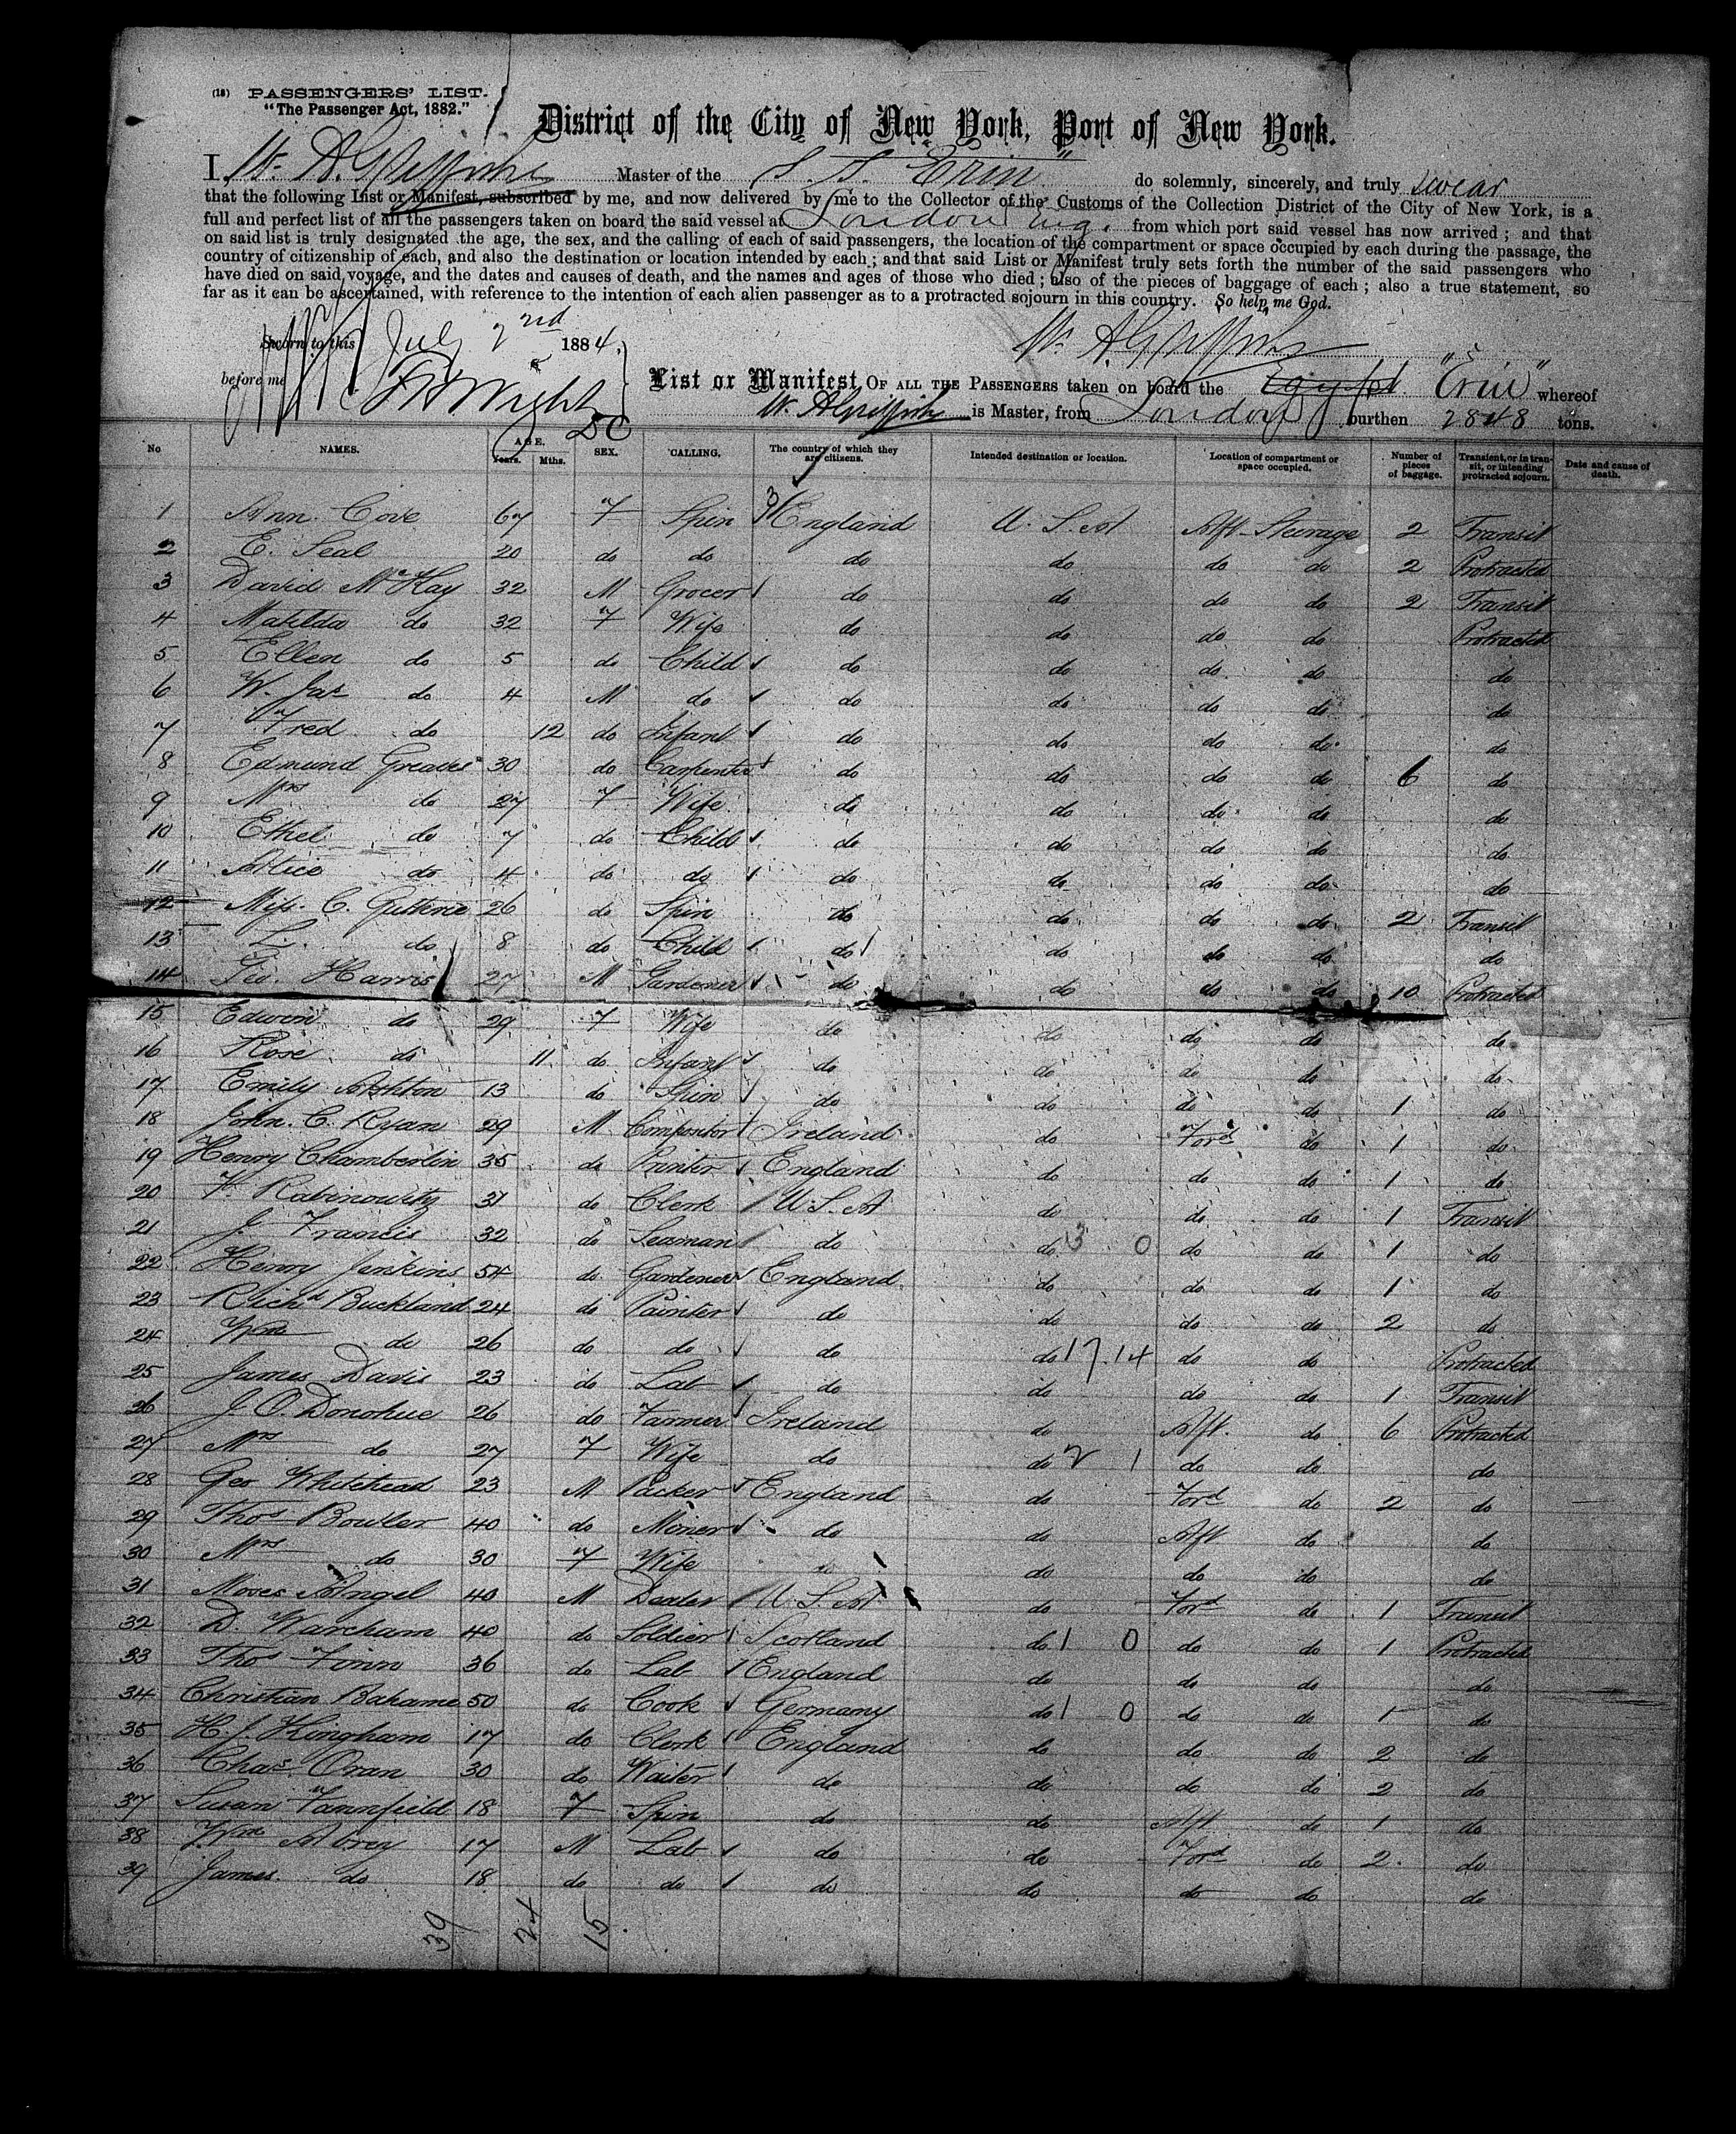 (18) PASSENGERS' LIST.
"The Passenger Act, 1882."
District of the City of New York, Port of New York.
I, W. A. Griffiths Master of the S. S. "Erin" do solemnly, sincerely, and truly swear
that the following List or Manifest, subscribed by me, and now delivered by me to the Collector of the Customs of the Collection District of the City of New York, is a
full and perfect list of all the passengers taken on board the said vessel at London Eng. from which port said vessel has now arrived; and that
on said list is truly designated the age, the sex, and the calling of each of said passengers, the location of the compartment or space occupied by each during the passage, the
country of citizenship of each, and also the destination or location intended by each; and that said List or Manifest truly sets forth the number of the said passengers who
have died on said voyage, and the dates and causes of death, and the names and ages of those who died; also of the pieces of baggage of each; also a true statement, so
far as it can be ascertained, with reference to the intention of each alien passenger as to a protracted sojourn in this country. So help me God.
Sworn to this July 2nd 1884. W. A. Griffiths
before me Wright DC
List or Manifest OF ALL THE PASSENGERS taken on board the Egypt "Erin" whereof
W. A. Griffiths is Master, from London burthen 2848 tons.
No NAMES. AGE. Years. Mths. SEX. CALLING. The country of which they are citizens. Intended destination or location. Location of compartment or space occupied. Number of pieces of baggage. Transient, or in transit, or intending protracted sojourn. Date and cause of death.
1 Ann Cove 67 F Spin England U.S.A Aft Steerage 2 Transit
2 E. Seal 20 do do do do do do 2 Protracted
3 David McKay 32 M Grocer do do do do 2 Transit
4 Matilda do 32 F Wife do do do do Protracted
5 Ellen do 5 do Child do do do do do
6 W. Jas do 4 M do do do do do do
7 Fred do 12 do Infant do do do do do
8 Edmund Greaves 30 do Carpenter do do do do 6 do
9 Mrs do 27 F Wife do do do do do
10 Ethel do 7 do Child do do do do do
11 Alice do 4 do do do do do do do
12 Miss C. Guthrie 26 do Spin do do do do 2 Transit
13 L. do 8 do Child do do do do do
14 Geo. Harris 27 M Gardener do do do do 10 Protracted
15 Edwin do 29 F Wife do do do do do
16 Rose do 11 do Infant do do do do do
17 Emily Ashton 13 do Spin do do do do 1 do
18 John. C. Ryan 29 M Compositor Ireland do Ford do 1 do
19 Henry Chamberlin 35 do Printer England do do do 1 do
20 Rabinowitz 31 do Clerk U.S.A do do do 1 Transit
21 J. Francis 32 do Seaman do do 3 0 do do 1 do
22 Henry Jenkins 54 do Gardener England do do do 1 do
23 Richd Buckland 24 do Painter do do do do 2 do
24 Wm do 26 do do do do 17.14 do do Protracted
25 James Davis 23 do Lab do do do do 1 Transit
26 J. O. Donohue 26 do Farmer Ireland do Aft. do 6 Protracted
27 Mrs do 27 F Wife do do 2 1 do do do
28 Geo Whitehead 23 M Packer England do Ford do 2 do
29 Thos Bowler 40 do Miner do do Aft do do
30 Mrs do 30 F Wife do do do do do
31 Moses Angel 40 M Dealer U.S.A do Ford do 1 Transit
32 D. Wareham 40 do Soldier Scotland do 1 0 do do 1 Protracted
33 Thos Finn 36 do Lab England do do do do
34 Christian Bahame 50 do Cook Germany do 1 0 do do 1 do
35 H. J. Kingham 17 do Clerk England do do do 2 do
36 Chas. Oran 30 do Waiter do do do do 2 do
37 Susan Fannfield 18 F Spin do do Aft do 1 do
38 Wm Abrey 17 M Lab do do Ford do 2 do
39 James do 18 do do do do do do do
39 24 15